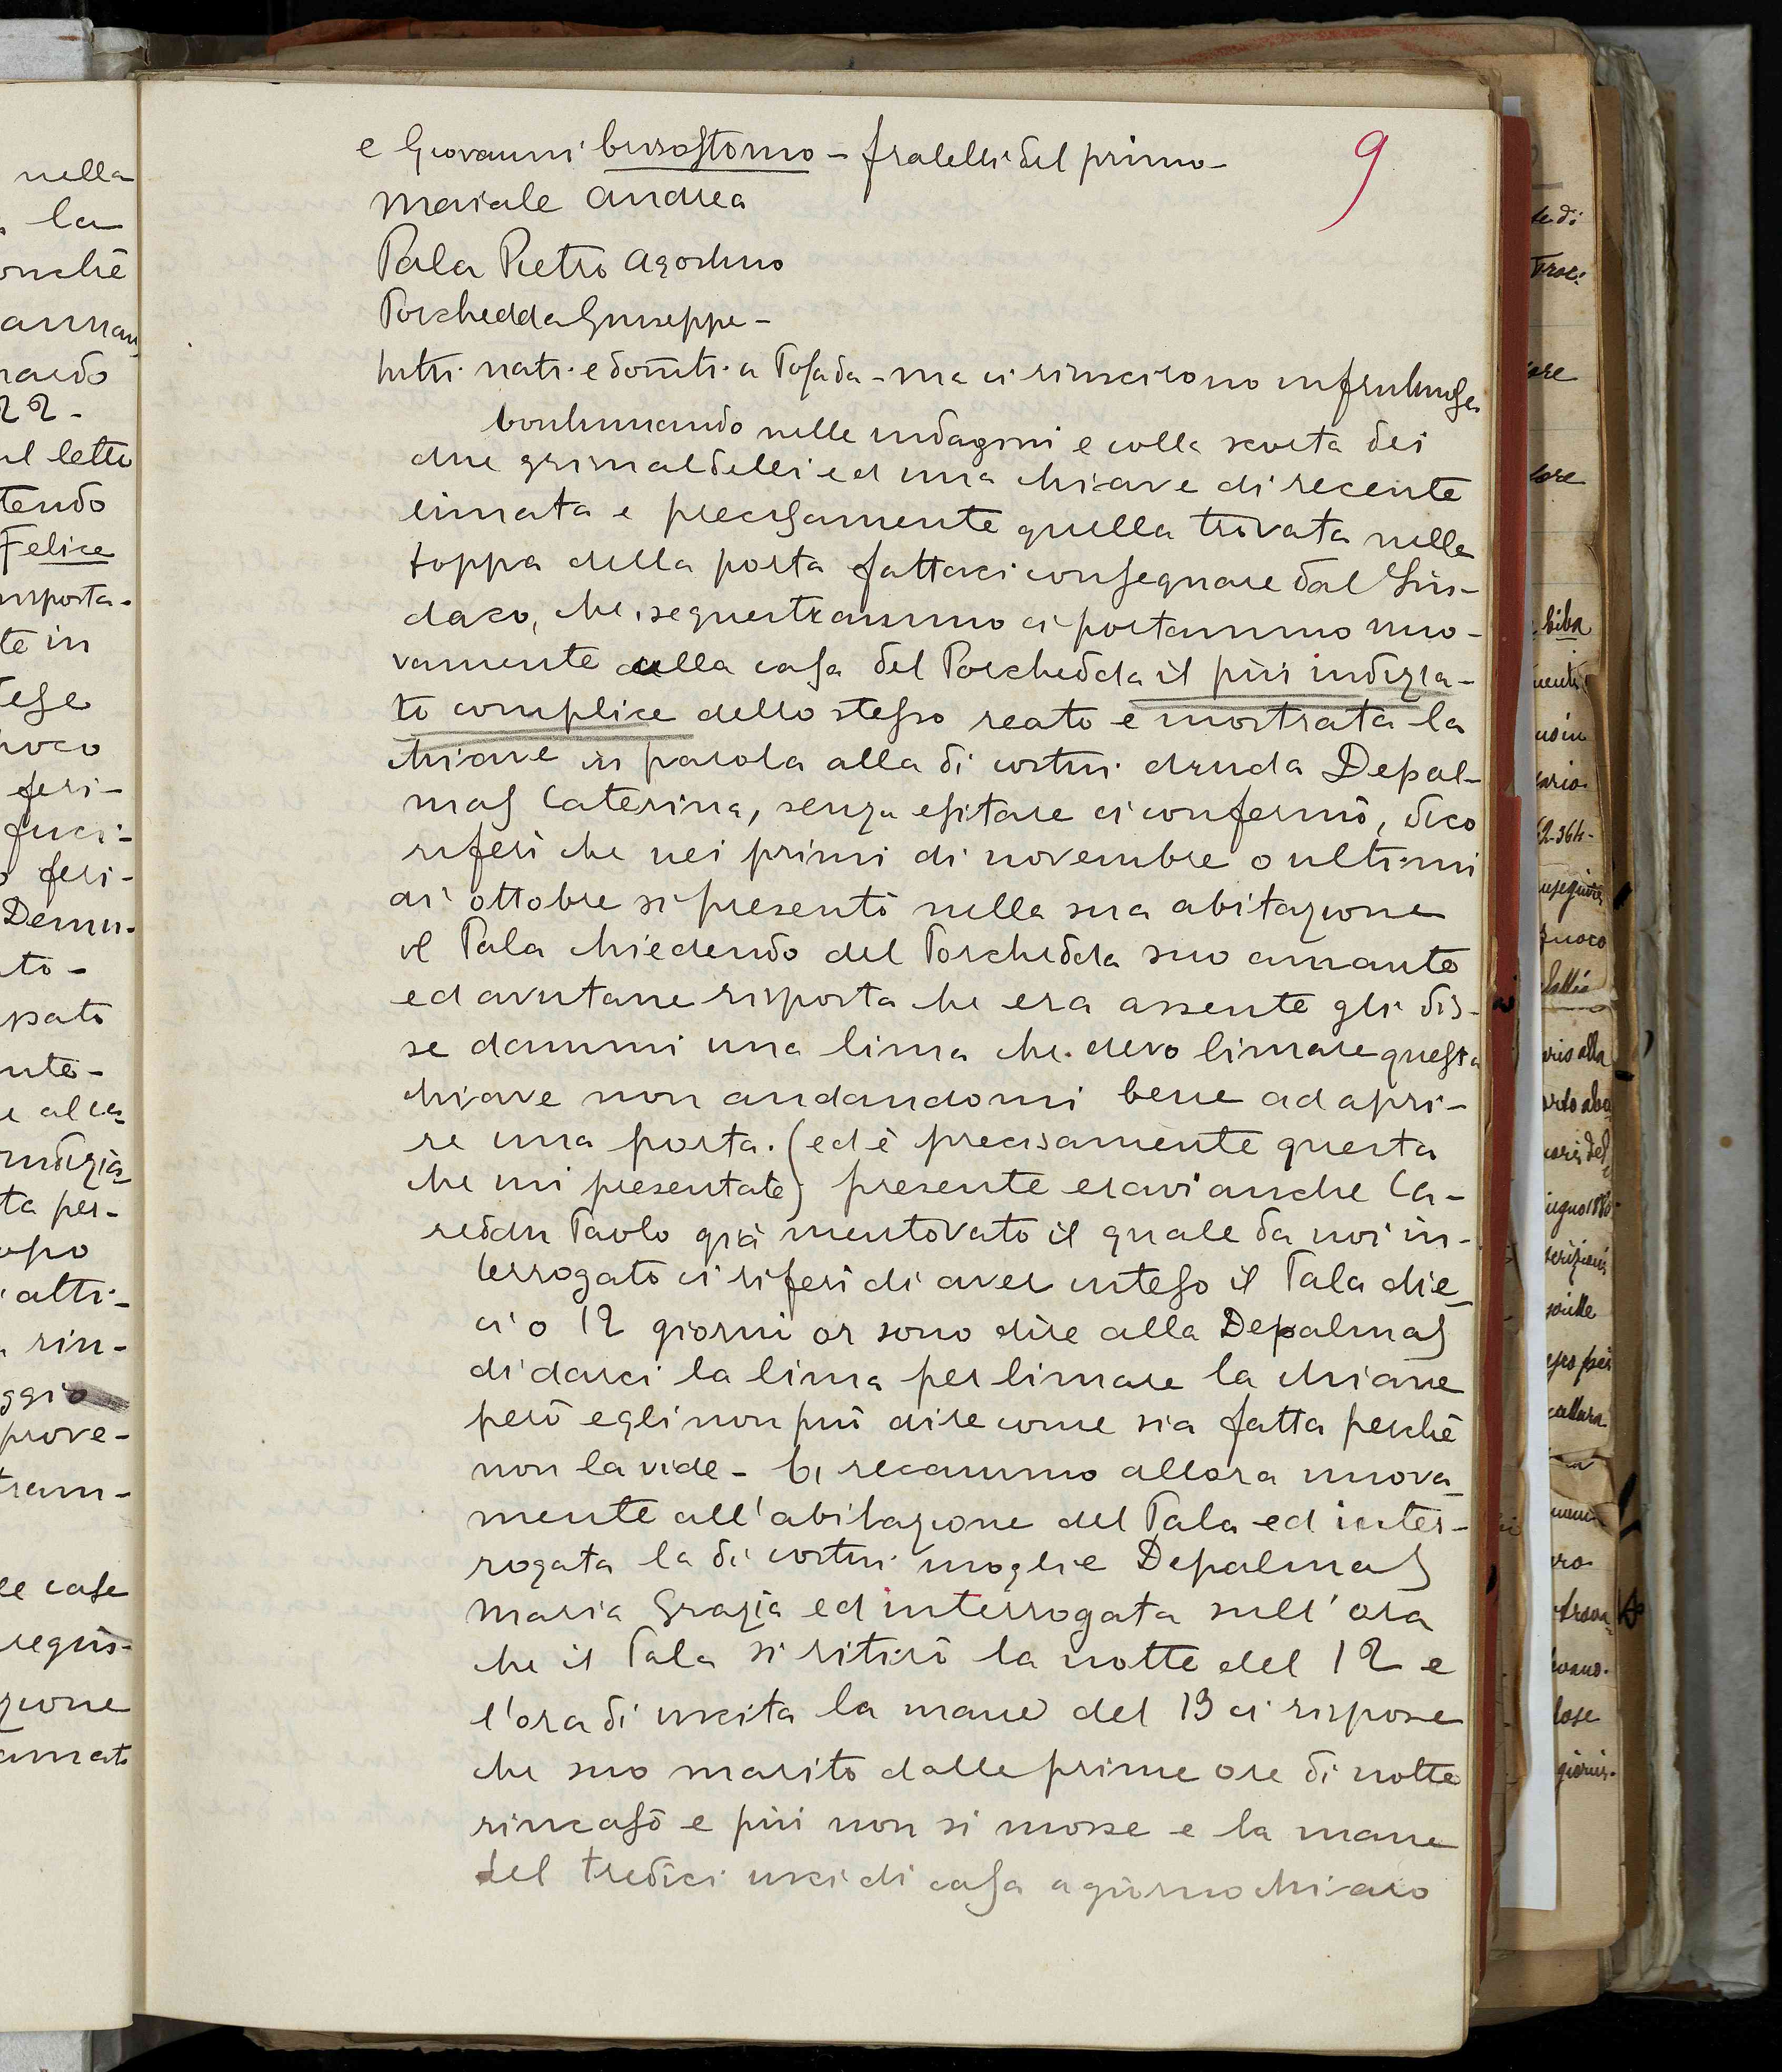 e Giovanni Crisostomo - fratelli del primo -
Maiale Andrea
Pala Pietro Agostino
Porchedda Giuseppe -
tutti nati e domti a Posada - ma ci riuscirono infruttuose
Continuando nelle indagini e colla scorta dei
due grimaldelli ed una chiave di recente
limata e precisamente quella trovata nella
toppa della porta fattaci consegnare dal Sin-
daco, che sequestrammo ci portammo nuo-
vamente alla casa del Porchedda il più indizia-
to complice dello stesso reato e mostrata la
chiave in parola alla di costui druda Depal-
mas Caterina, senza esitare ci confermò, dico
riferì che nei primi di novembre o ultimi
di ottobre si presentò nella sua abitazione
il Pala chiedendo del Porchedda suo amante
ed avutane risposta che era assente gli dis-
se dammi una lima che devo limare questa
chiave non andandomi bene ad apri-
re una porta. (ed è precisamente questa
che mi presentate) presente eravi anche Ca-
reddu Paolo già mentovato il quale da noi in-
terrogato ci riferì di aver inteso il Pala die-
ci o 12 giorni or sono dire alla Depalmas
di darci la lima per limare la chiave
però egli non può dire come sia fatta perchè
non la vide - Ci recammo allora nuova
mente all'abitazione del Pala ed inter-
rogata la di costui moglie Depalmas
Maria Grazia ed interrogata sull'ora
che il Pala si ritirò la notte del 12 e
l'ora di uscita la mane del 13 ci rispose
che suo marito dalle prime ore di notte
rincasò e più non si mosse e la mane
del tredici uscì di casa a giorno chiaro
9
nella
la
onchè
22 -
tendo
Felice
te in
feri-
Demu-
nte -
ta per-
altri-
rin-
prove-
le case
zione
biba
fuoco